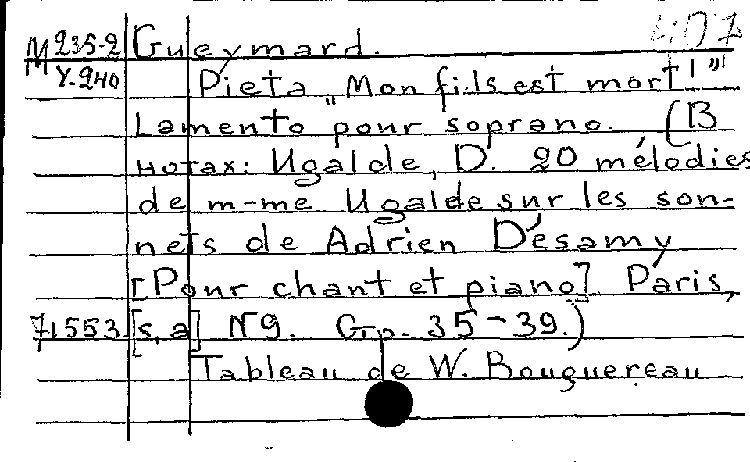 407
М 235-2 Gueymard.
М У-240 Pieta „Mon fils est mort!"
Lamento pour soprano. (В
нотах: Ugalde, D. 20 mélodies
de m-me Ugalde sur les son-
nets de Adrien Désamy
[Pour chant et piano]. Paris,
71553. [s,a] N9. Стр. 35-39.)
Tableau de W. Bouguereau